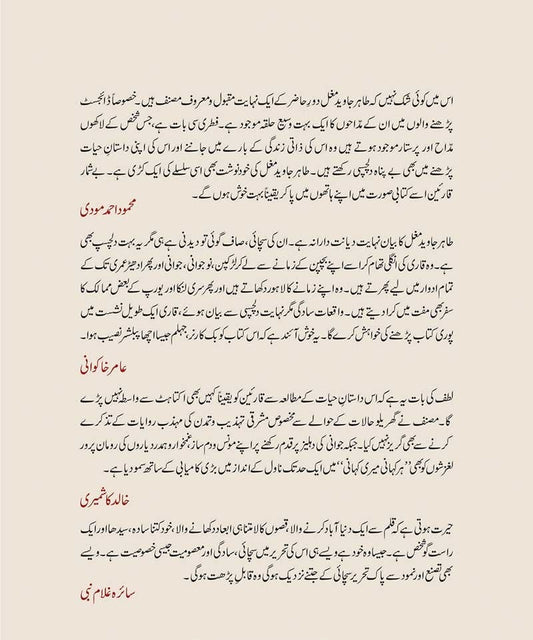 اس میں کوئی شک نہیں کہ طاہر جاوید مغل دورِ حاضر کے ایک نہایت مقبول و معروف مصنف ہیں۔ خصوصاً ڈائجسٹ
پڑھنے والوں میں ان کے مداحوں کا ایک بہت وسیع حلقہ موجود ہے۔ فطری سی بات ہے، جس شخص کے لاکھوں
مداح اور پرستار موجود ہوتے ہیں وہ اس کی ذاتی زندگی کے بارے میں جاننے اور اس کی اپنی داستانِ حیات
پڑھنے میں بھی بے پناہ دلچسپی رکھتے ہیں۔ طاہر جاوید مغل کی خودنوشت بھی اسی سلسلے کی ایک کڑی ہے۔ بے شمار
قارئین اسے کتابی صورت میں اپنے ہاتھوں میں پا کر یقیناً بہت خوش ہوں گے۔
محمود احمد مودی
طاہر جاوید مغل کا بیان نہایت دیانت دارانہ ہے۔ ان کی سچائی، صاف گوئی تو دیدنی ہے ہی مگر یہ بہت دلچسپ بھی
ہے۔ وہ قاری کی انگلی تھام کر اسے اپنے بچپن کے زمانے سے لے کر لڑکپن، نوجوانی، جوانی اور پھر ادھیڑ عمری تک کے
تمام ادوار میں لیے پھرتے ہیں۔ وہ اپنے زمانے کا لاہور دکھاتے ہیں اور پھر سری لنکا اور یورپ کے بعض ممالک کا
سفر بھی مفت میں کرا دیتے ہیں۔ واقعات سادگی مگر نہایت دلچسپی سے بیان ہوئے، قاری ایک طویل نشست میں
پوری کتاب پڑھنے کی خواہش کرے گا۔ یہ خوش آئند ہے کہ اس کتاب کو بک کارنر جہلم جیسا اچھا پبلشر نصیب ہوا۔
عامر خاکوانی
لطف کی بات یہ ہے کہ اس داستانِ حیات کے مطالعہ سے قارئین کو یقیناً کہیں بھی اکتاہٹ سے واسطہ نہیں پڑے
گا۔ مصنف نے گھریلو حالات کے حوالے سے مخصوص مشرقی تہذیب و تمدن کی مہذب روایات کے تذکرے
کرنے سے بھی گریز نہیں کیا۔ جبکہ جوانی کی دہلیز پر قدم رکھنے پر اپنے مونس و دم ساز، غمخوار و ہمدرد یاروں کی رومان پرور
لغزشوں کو بھی ”ہر کہانی میری کہانی“ میں ایک حد تک ناول کے انداز میں بڑی کامیابی کے ساتھ سمو دیا ہے۔
خالد کاشمیری
حیرت ہوتی ہے کہ قلم سے ایک دنیا آباد کرنے والا، قصوں کا لامتناہی ابعاد دکھانے والا، خود کتنا سادہ، سیدھا اور ایک
راست گو شخص ہے۔ جیسا وہ خود ہے ویسے ہی اس کی تحریر میں سچائی، سادگی اور معصومیت جیسی خصوصیت ہے۔ ویسے
بھی تصنع اور نمود سے پاک تحریر سچائی کے جتنے نزدیک ہوگی وہ قابلِ پڑھت ہوگی۔
سائرہ غلام نبی